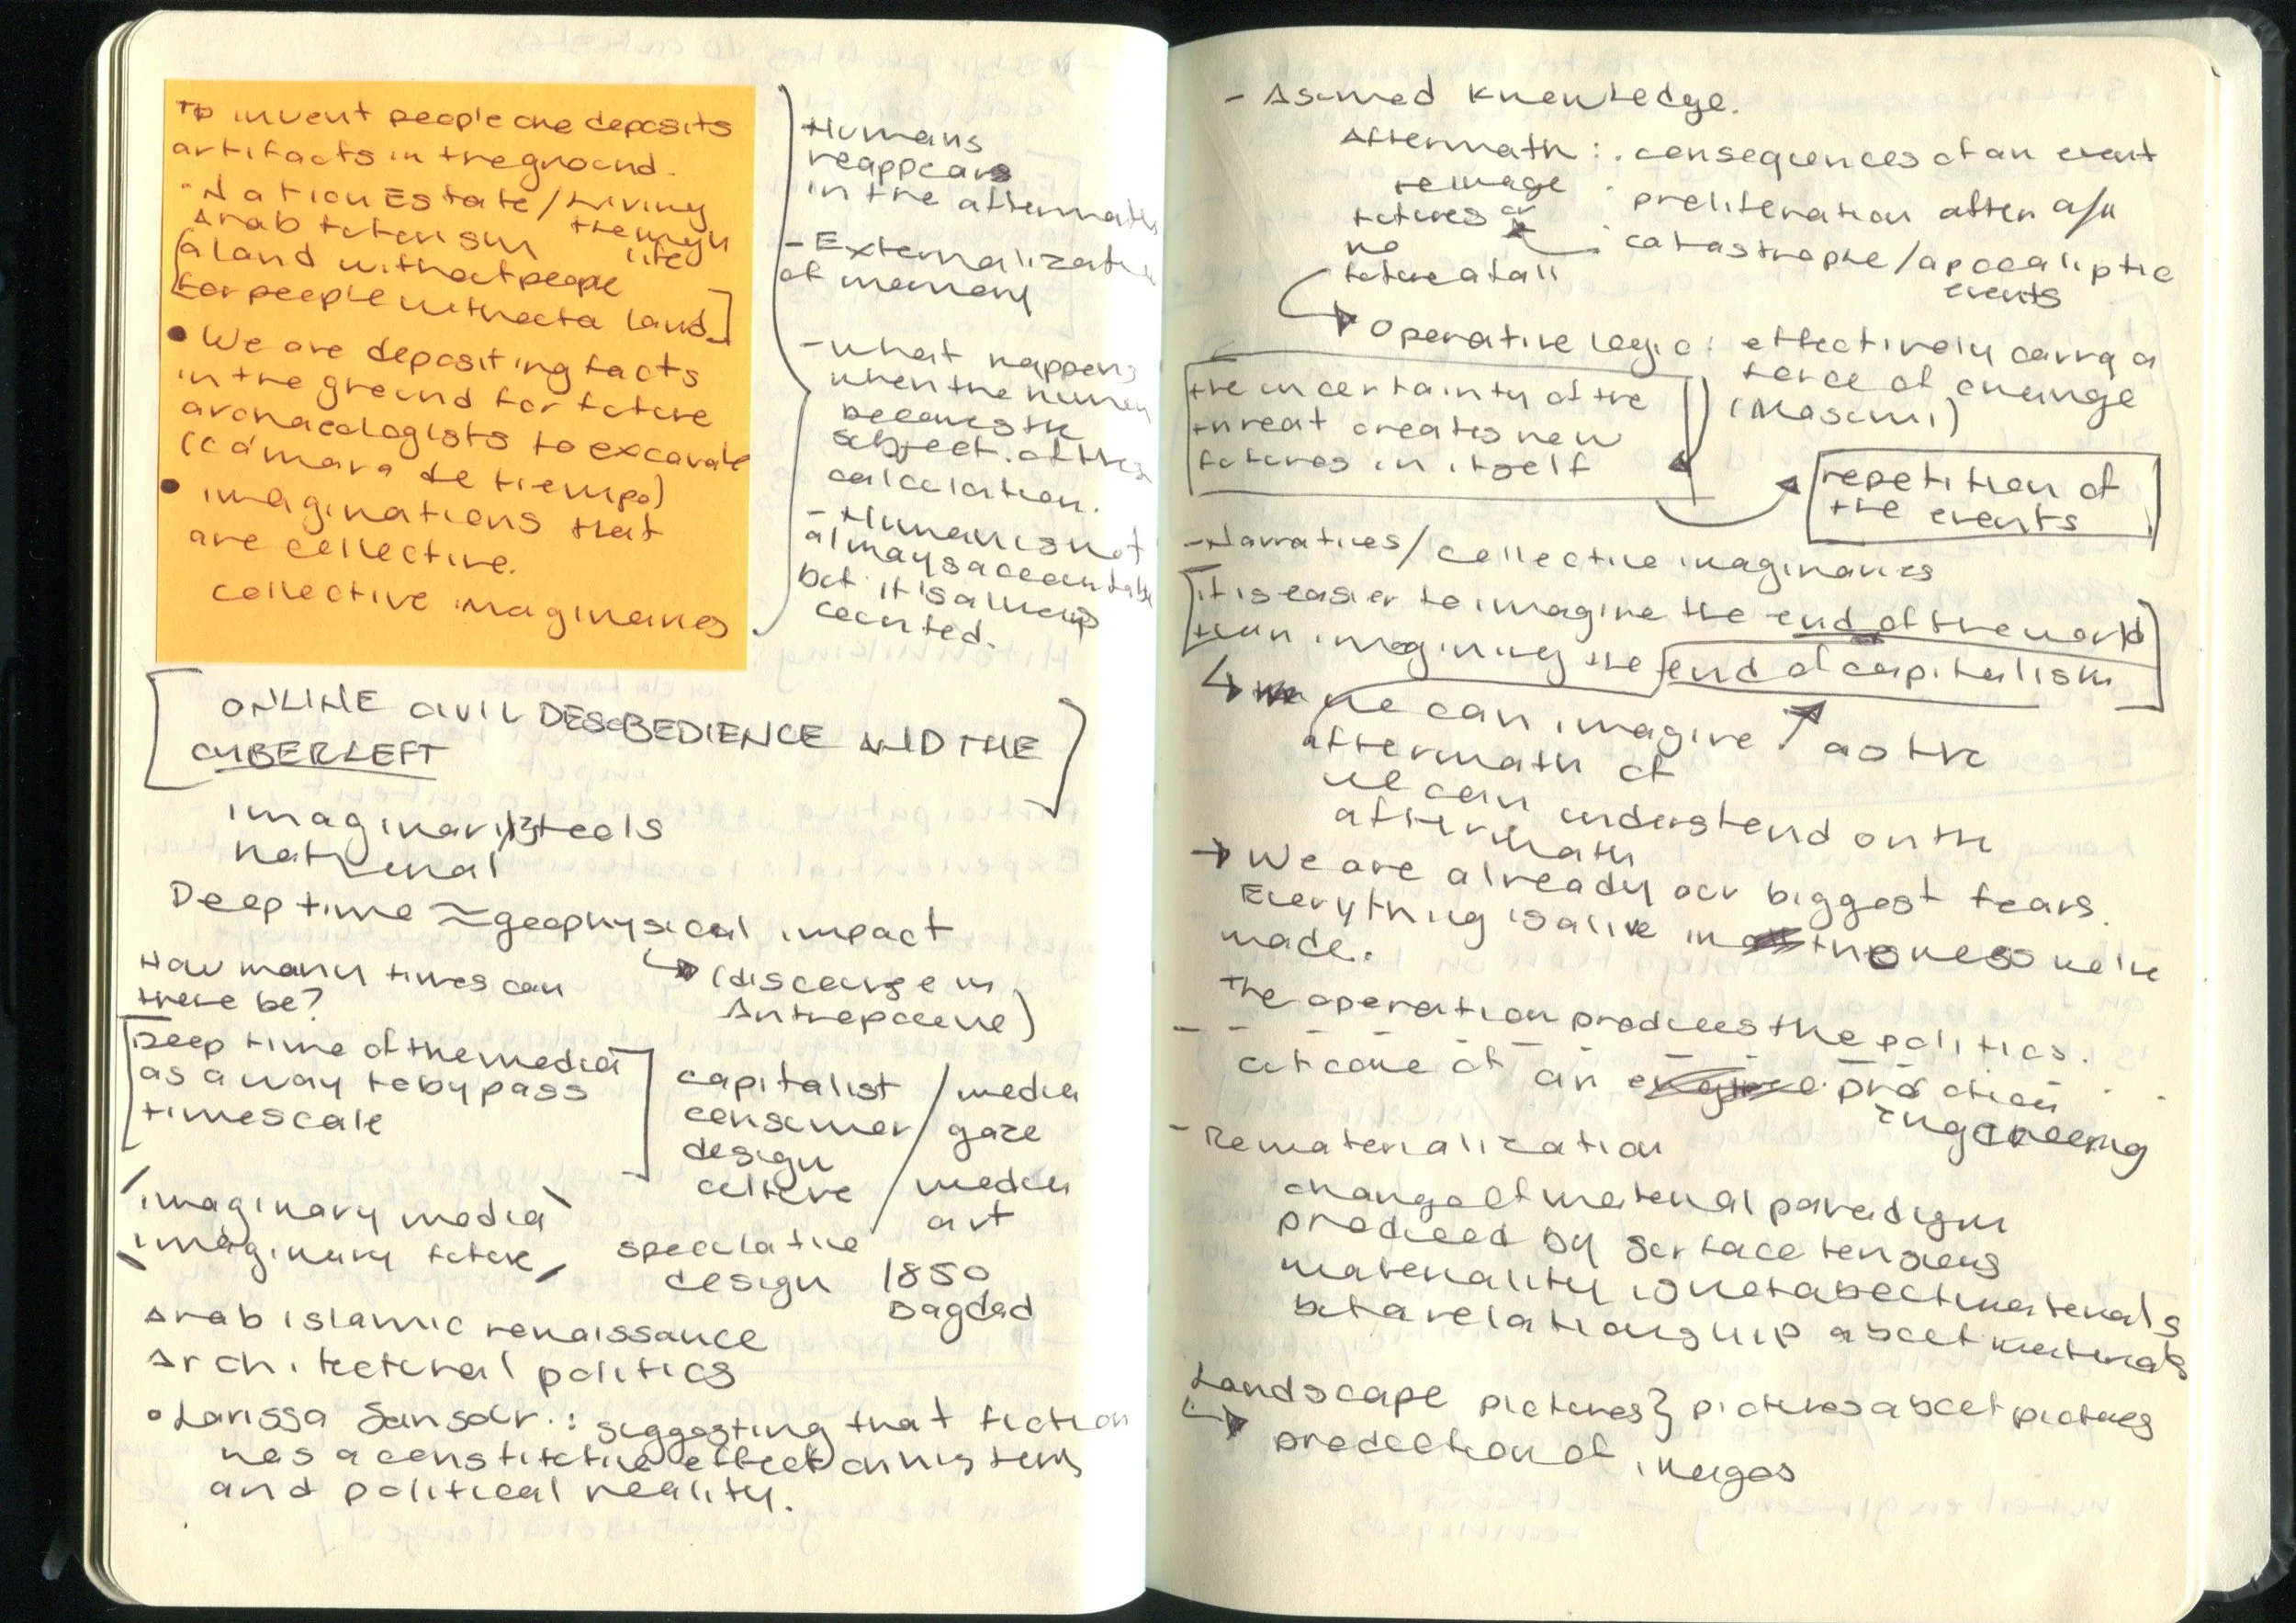 To invent people one deposits
artifacts in the ground.
Nation Estate / Living
Arab futurism through
life
[a land without people
for people without a land]
• We are depositing facts
in the ground for future
archaeologists to excavate
(cámara de tiempo)
• imaginations that
are collective.
collective imaginaries
Humans
reappears
in the aftermath
- Externalization
of memory
- What happens
when the human
becomes the
subject of this
calculation.
- Human is not
always accountable
but it's always
counted.
[ONLINE CIVIL DESOBEDIENCE AND THE
CYBERLEFT]
imaginaries tools
national
Deep time ≈ geophysical impact
↳ (discourse in
Antropocene)
How many times can
there be?
[Deep time of the media
as a way to bypass
timescale]
capitalist / media
consumer / gaze
design
culture / media
art
imaginary media
imaginary future
speculative
design
1850
Bagdad
Arab islamic renaissance
Architectural politics
• Larissa Sansour: suggesting that fiction
has a constitutive effect on history
and political reality.
- Asumed knowledge.
Aftermath: • consequences of an event
• proliferation after a/n
• catastrophe/apocaliptic
events
futures or
no
future at all
Operative logic: effectively carry a
force of change
(Massumi)
the incertainty of the
threat creates new
futures in itself
repetition of
the events
- Narratives/collective imaginaries
[it is easier to imagine the end of the world
than imagining the end of capitalism]
↳ we can imagine ↗ as the
aftermath of
we can understand on the
aftermath
→ We are already our biggest fears.
Everything is alive in the mess we've
made.
The operation produces the politics.
outcome of an
engineering
- Rematerialization
change of material paradigm
produced by surface tensions
materiality is not about materials
but a relationship about materials
Landscape pictures} pictures about pictures
↳ production of images